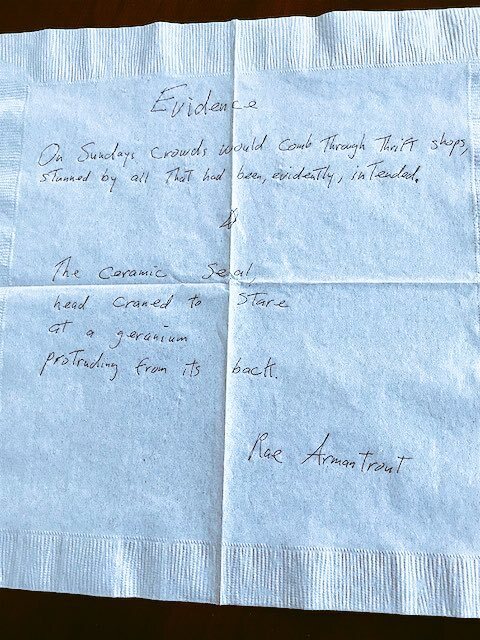 Evidence
On Sundays, crowds would comb through thrift shops,
stunned by all that had been, evidently, intended.
The ceramic seal,
head craned to stare
at a geranium
protruding from its back.
Rae Armantrout